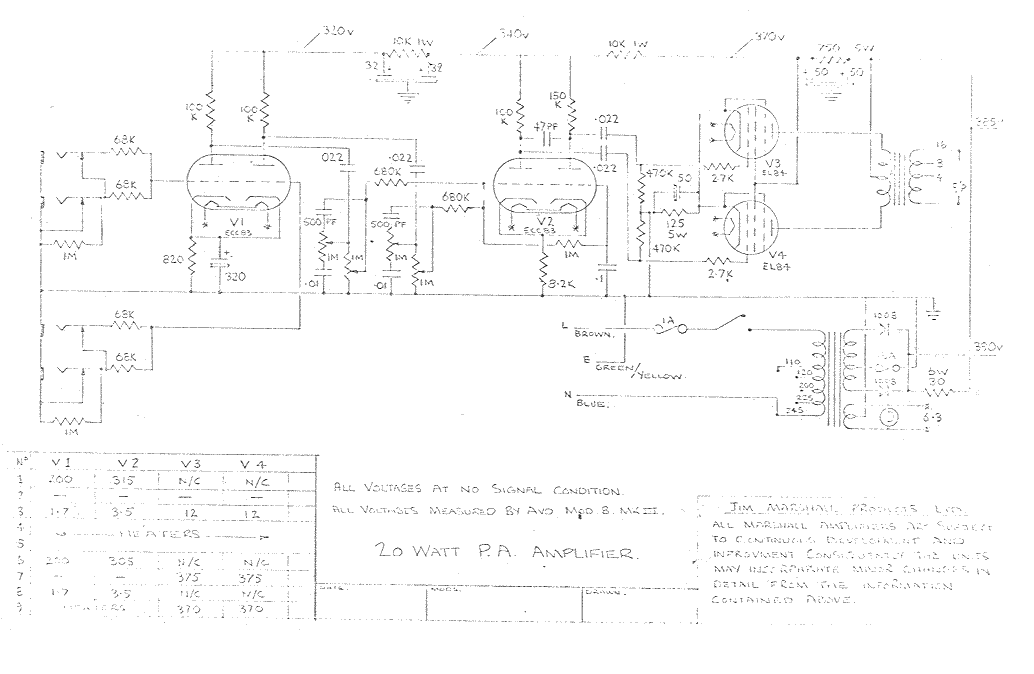 320v
10K 1W
32
32
340v
10K 1W
370v
750 5W
+ 50
+ 50
100K
100K
100K
150K
47PF
.022
.022
385v
68K
68K
022
.022
680K
680K
470K
50
125 5W
470K
2.7K
2.7K
V3
EL84
V4
EL84
16
8
4
V1
ECC83
V2
ECC83
500 PF
500 PF
1M
1M
1M
1M
1M
1M
820
320
.01
.01
8.2K
.1
68K
68K
1M
L BROWN.
1A
E GREEN/YELLOW.
N BLUE.
110
120
200
225
245
390v
30
6.3
No V1 V2 V3 V4
1 200 315 N/C N/C
2 — — — —
3 1.7 3.5 12 12
4 HEATERS
5
6 200 305 N/C N/C
7 — — 375 375
8 1.7 3.5 N/C N/C
9 HEATERS 370 370
ALL VOLTAGES AT NO SIGNAL CONDITION.
ALL VOLTAGES MEASURED BY AVO MOD 8. MK III.
20 WATT P.A. AMPLIFIER.
DATE.
DRAWN.
JIM MARSHALL PRODUCTS LTD.
ALL MARSHALL AMPLIFIERS ARE SUBJECT
TO CONTINUOUS DEVELOPMENT AND
IMPROVMENT CONSEQUENTLY THE UNITS
MAY INCORPORATE MINOR CHANGES IN
DETAIL FROM THE INFORMATION
CONTAINED ABOVE.